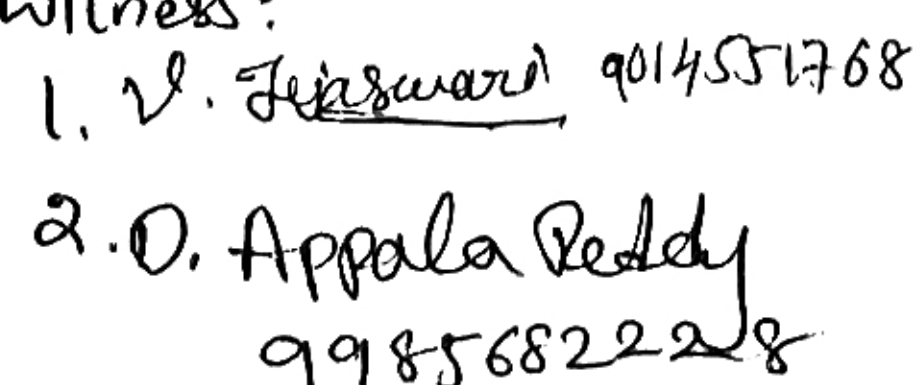 Witness:
1. V. Tejaswari 9014551768
2. D. Appala Reddy
9985682228